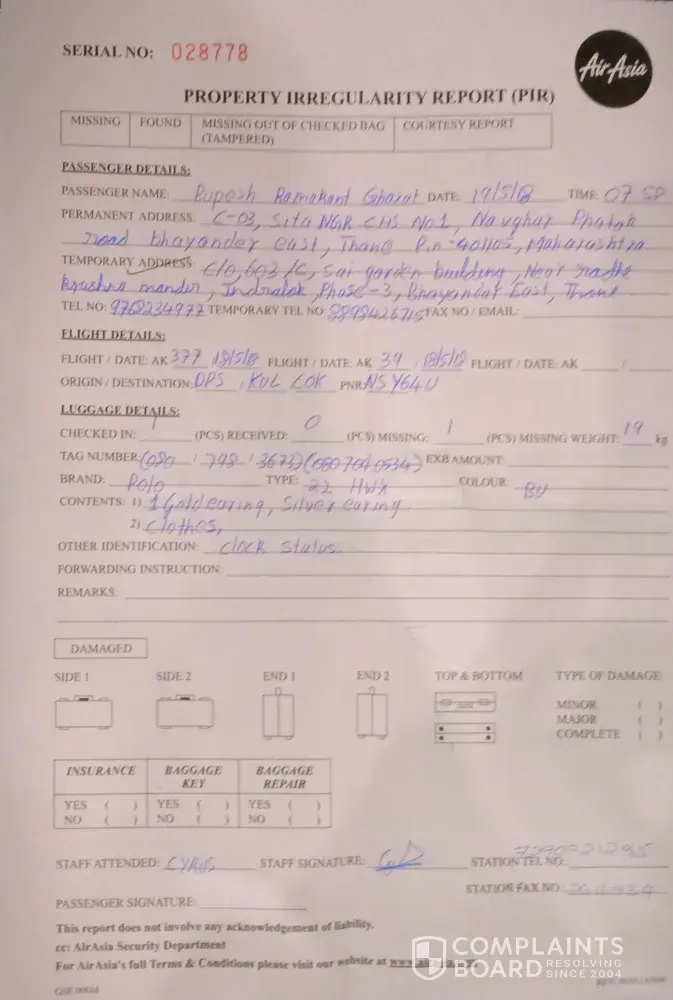 SERIAL NO: 028778
AirAsia
PROPERTY IRREGULARITY REPORT (PIR)
MISSING FOUND MISSING OUT OF CHECKED BAG (TAMPERED) COURTESY REPORT
PASSENGER DETAILS:
PASSENGER NAME: Rupesh Ramakant Gharat DATE: 19/5/18 TIME: 07 50
PERMANENT ADDRESS: C-03, Sita NGR CHS No 1, Navghar Phatak
road bhayander east, Thane Pin-401105, Maharashtra
TEMPORARY ADDRESS: C/O, 603/C, Sai garden building, Near radhe
krushna mandir, Indralok, Phase-3, Bhayandar East, Thane
TEL NO: 9768234977 TEMPORARY TEL NO: 8898426715 FAX NO / EMAIL:
FLIGHT DETAILS:
FLIGHT / DATE: AK 377 18/5/18 FLIGHT / DATE: AK 39 / 18/5/18 FLIGHT / DATE: AK /
ORIGIN / DESTINATION: DPS / KUL COK PNR: NSY64U
LUGGAGE DETAILS:
CHECKED IN: 1 (PCS) RECEIVED: 0 (PCS) MISSING: 1 (PCS) MISSING WEIGHT: 19 kg
TAG NUMBER: (080 / 798 / 3673) (080 764 0534) EXB AMOUNT:
BRAND: Polo TYPE: 22 HWX COLOUR: BU
CONTENTS: 1) 1 Gold earing, Silver earing
2) Clothes,
OTHER IDENTIFICATION: clock status
FORWARDING INSTRUCTION:
REMARKS:
DAMAGED
SIDE 1 SIDE 2 END 1 END 2 TOP & BOTTOM TYPE OF DAMAGE
MINOR ( )
MAJOR ( )
COMPLETE ( )
INSURANCE BAGGAGE KEY BAGGAGE REPAIR
YES ( ) YES ( ) YES ( )
NO ( ) NO ( ) NO ( )
STAFF ATTENDED: CYRUS STAFF SIGNATURE: STATION TEL NO:
STATION FAX NO:
PASSENGER SIGNATURE:
This report does not involve any acknowledgement of liability.
cc: AirAsia Security Department
For AirAsia's full Terms & Conditions please visit our website at
COMPLAINTS
BOARD RESOLVING SINCE 2004